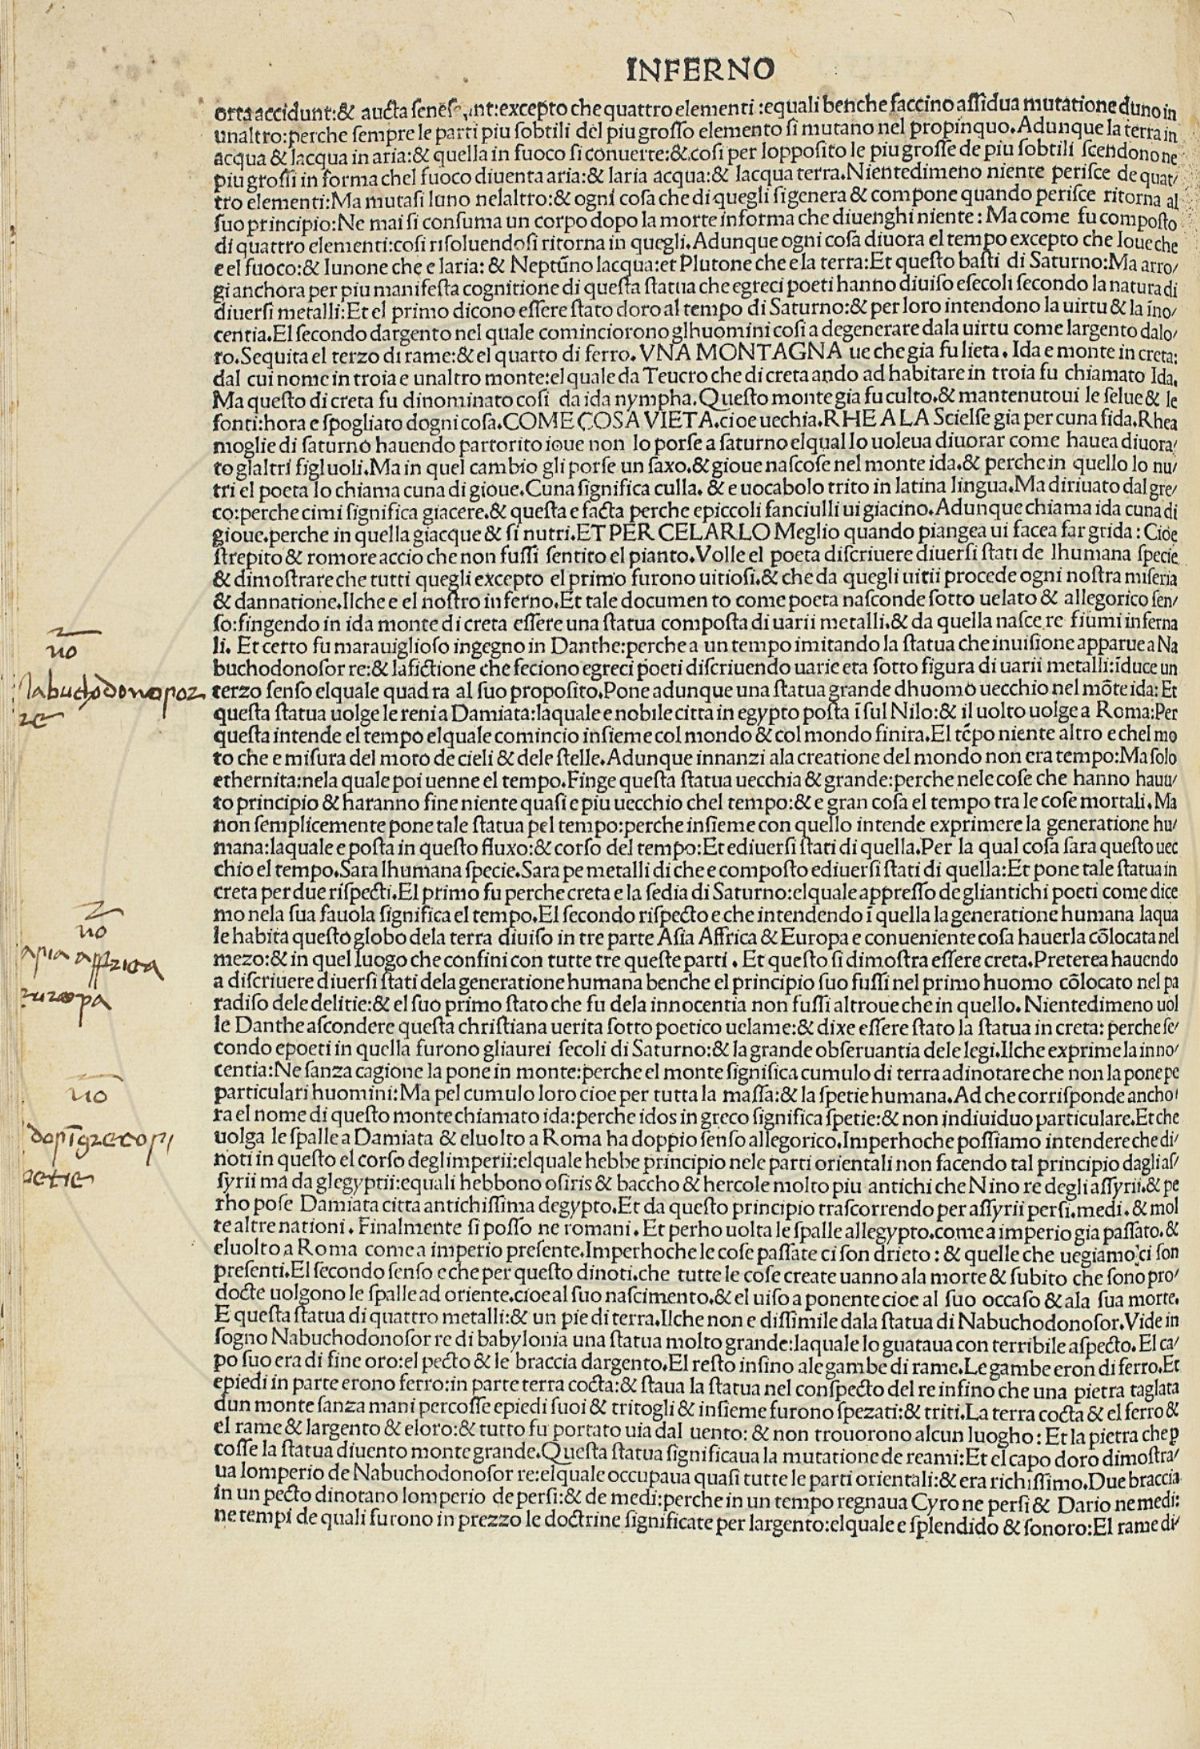 INFERNO
orta accidunt:& aucta senescunt:excepto che quattro elementi :equali benche faccino assidua mutatione duno in
unaltro:perche sempre le parti piu sobtili del piu grosso elemento si mutano nel propinquo.Adunque la terra in
acqua & lacqua in aria:& quella in fuoco si conuerte:& cosi per lopposito le piu grosse de piu sobtili scendono ne
piu grossi in forma chel fuoco diuenta aria:& laria acqua:& lacqua terra.Nientedimeno niente perisce de quat/
tro elementi:Ma mutasi luno nelaltro:& ogni cosa che di quegli sigenera & compone quando perisce ritorna al
suo principio:Ne mai si consuma un corpo dopo la morte informa che diuenghi niente: Ma come fu composto
di quattro elementi:cosi risoluendosi ritorna in quegli.Adunque ogni cosa diuora el tempo excepto che Ioue che
e el fuoco:& Iunone che e laria: & Neptũno lacqua:et Plutone che e la terra:Et questo basti di Saturno:Ma arro/
gi anchora per piu manifesta cognitione di questa statua che egreci poeti hanno diuiso esecoli secondo la natura di
diuersi metalli:Et el primo dicono essere stato doro al tempo di Saturno:& per loro intendono la uirtu & la ĩno/
centia.El secondo dargento nel quale cominciorono glhuomini cosi a degenerare dala uirtu come largento dalo/
ro.Sequita el terzo di rame:& el quarto di ferro. VNA MONTAGNA ue che gia fu lieta. Ida e monte in creta:
dal cui nome in troia e unaltro monte:el quale da Teucro che di creta ando ad habitare in troia fu chiamato Ida.
Ma questo di creta fu dinominato cosi da ida nympha. Questo monte gia fu culto.& mantenutoui le selue & le
fonti:hora e spogliato dogni cosa.COME COSA VIETA.cioe uechia.RHEA LA Scielse gia per cuna fida.Rhea
moglie di saturno hauendo partorito ioue non lo porse a saturno elqual lo uoleua diuorar come hauea diuora/
to glaltri figluoli.Ma in quel cambio gli porse un saxo.& gioue nascose nel monte ida.& perche in quello lo nu/
tri el poeta lo chiama cuna di gioue.Cuna significa culla. & e uocabolo trito in latina lingua.Ma diriuato dal gre/
co:perche cimi significa giacere.& questa e facta perche epiccoli fanciulli ui giacino.Adunque chiama ida cuna di
gioue.perche in quella giacque & si nutri.ET PER CELARLO Meglio quando piangea ui facea far grida: Cioe
strepito & romore accio che non fussi sentito el pianto.Volle el poeta discriuere diuersi stati de lhumana specie
& dimostrare che tutti quegli excepto el primo furono uitiosi.& che da quegli uitii procede ogni nostra miseria
& dannatione.Ilche e el nostro inferno.Et tale documento come poeta nasconde sotto uelato & allegorico sen/
so:fingendo in ida monte di creta essere una statua composta di uarii metalli.& da quella nascere fiumi inferna
li. Et certo fu marauiglioso ingegno in Danthe:perche a un tempo imitando la statua che inuisione apparue a Na
buchodonosor re:& lafictione che feciono egreci poeti discriuendo uarie eta sotto figura di uarii metalli:ĩduce un
terzo senso elquale quadra al suo proposito.Pone adunque una statua grande dhuomo uecchio nel mõte ida: Et
questa statua uolge le reni a Damiata:laquale e nobile citta in egypto posta ĩ sul Nilo:& il uolto uolge a Roma:Per
questa intende el tempo elquale comincio insieme col mondo & col mondo finira.El tẽpo niente altro e chel mo
to che e misura del moto de cieli & dele stelle.Adunque innanzi ala creatione del mondo non era tempo:Ma solo
ethernita:nela quale poi uenne el tempo.Finge questa statua uecchia & grande:perche nele cose che hanno hauu/
to principio & haranno fine niente quasi e piu uecchio chel tempo:& e gran cosa el tempo tra le cose mortali.Ma
non semplicemente pone tale statua pel tempo:perche insieme con quello intende exprimere la generatione hu/
mana:laquale e posta in questo fluxo:& corso del tempo:Et ediuersi stati di quella.Per la qual cosa sara questo uec
chio el tempo.Sara lhumana specie.Sara pe metalli di che e composto ediuersi stati di quella:Et pone tale statua in
creta per due rispecti.El primo fu perche creta e la sedia di Saturno:elquale appresso de gliantichi poeti come dice
mo nela sua fauola significa el tempo.El secondo rispecto e che intendendo ĩ quella la generatione humana laqua
le habita questo globo dela terra diuiso in tre parte Asia Affrica & Europa e conueniente cosa hauerla cõlocata nel
mezo:& in quel luogo che confini con tutte tre queste parti . Et questo si dimostra essere creta.Preterea hauendo
a discriuere diuersi stati dela generatione humana benche el principio suo fussi nel primo huomo cõlocato nel pa
radiso dele delitie:& el suo primo stato che fu dela innocentia non fussi altroue che in quello. Nientedimeno uol
le Danthe ascondere questa christiana uerita sotto poetico uelame:& dixe essere stato la statua in creta: perche se/
condo epoeti in quella furono gliaurei secoli di Saturno:& la grande obseruantia dele legi.Ilche exprime la inno/
centia:Ne sanza cagione la pone in monte:perche el monte significa cumulo di terra adinotare che non la pone pe
particulari huomini:Ma pel cumulo loro cioe per tutta la massa:& la spetie humana. Ad che corrisponde ancho/
ra el nome di questo monte chiamato ida:perche idos in greco significa spetie:& non indiuiduo particulare.Et che
uolga le spalle a Damiata & eluolto a Roma ha doppio senso allegorico.Imperhoche possiamo intendere che di/
noti in questo el corso deglimperii:elquale hebbe principio nele parti orientali non facendo tal principio dagliaf/
syrii ma da glegyptii:equali hebbono osiris & baccho & hercole molto piu antichi che Nino re degli assyrii.& pe
rho pose Damiata citta antichissima degypto.Et da questo principio trascorrendo per assyrii persi.medi.& mol
te altre nationi . Finalmente si poso ne romani . Et perho uolta le spalle allegypto.come a imperio gia passato.&
eluolto a Roma come a imperio presente.Imperhoche le cose passate ci son drieto: & quelle che uegiamo ci son
presenti.El secondo senso e che per questo dinoti.che tutte le cose create uanno ala morte & subito che sono pro/
docte uolgono le spalle ad oriente.cioe al suo nascimento.& el uiso a ponente cioe al suo occaso & ala sua morte.
E questa statua di quattro metalli:& un pie di terra.Ilche non e dissimile dala statua di Nabuchodonosor.Vide in
sogno Nabuchodonosor re di babylonia una statua molto grande:laquale lo guataua con terribile aspecto.El ca/
po suo era di fine oro:el pecto & le braccia dargento.El resto insino ale gambe di rame.Le gambe eron di ferro.Et
epiedi in parte erono ferro:in parte terra cocta:& staua la statua nel conspecto del re infino che una pietra taglata
dun monte sanza mani percosse epiedi suoi & tritogli & insieme furono spezati:& triti.La terra cocta & el ferro &
el rame & largento & eloro:& tutto fu portato uia dal uento: & non trouorono alcun luogho: Et la pietra che ꝑ
cosse la statua diuento monte grande.Questa statua significaua la mutatione de reami:Et el capo doro dimostra/
ua lomperio de Nabuchodonosor re:elquale occupaua quasi tutte le parti orientali:& era richissimo.Due braccia
in un pecto dinotano lomperio de persi:& de medi:perche in un tempo regnaua Cyro ne persi & Dario ne medi:
ne tempi de quali furono in prezzo le doctrine significate per largento:elquale e splendido & sonoro:El rame di/
no
nabuchodonosor
re
no
asia affrica
europa
no